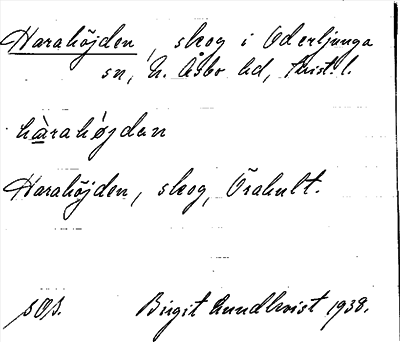 Harahöjden, skog i Oderljunga
sn, N. Åsbo hd, Krist. l.
hàrahø̀jdan
Harahöjden, skog, Örahult.
sOs. Birgit Lundkvist 1938.